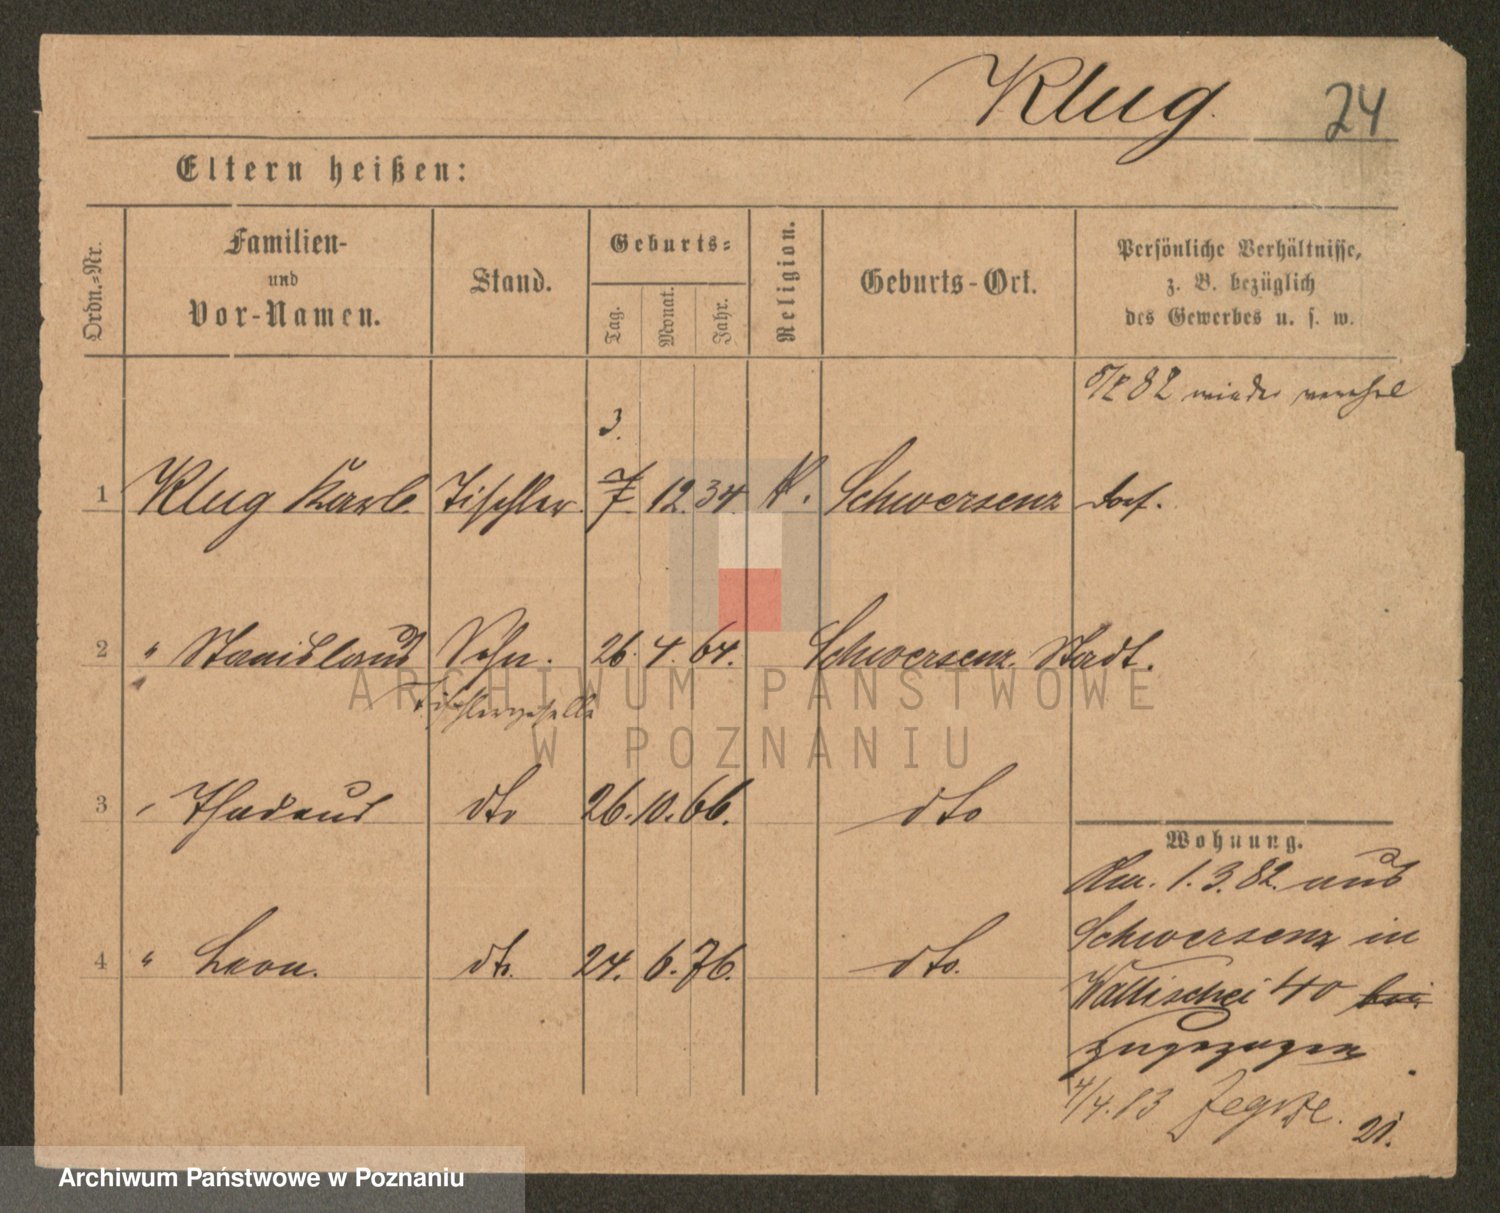 Klug. 24
Eltern heißen:
Ordn.-Nr.
Familien-
und
Vor-Namen.
Stand.
Geburts-
Tag.
Monat.
Jahr.
Religion.
Geburts-Ort.
Persönliche Verhältnisse,
z. B. bezüglich
des Gewerbes u. s. w.
82 wieder
3.
1 Klug Karl. Tischler. 7. 12. 34. K. Schwersenz
2 " Stanislaus Sohn. 26. 4. 64. Schwersenz Stadt.
Tischlergeselle
3 " Thadeus dto 26. 10. 66. dto
4 " Leon. dto. 24. 6. 76. dto.
Wohnung.
1. 3. 82. aus
Schwersenz in
Wallischei 40 bei
zugezogen
4/4. 83 Zegrze.
21.
ARCHIWUM PAŃSTWOWE
W POZNANIU
Archiwum Państwowe w Poznaniu